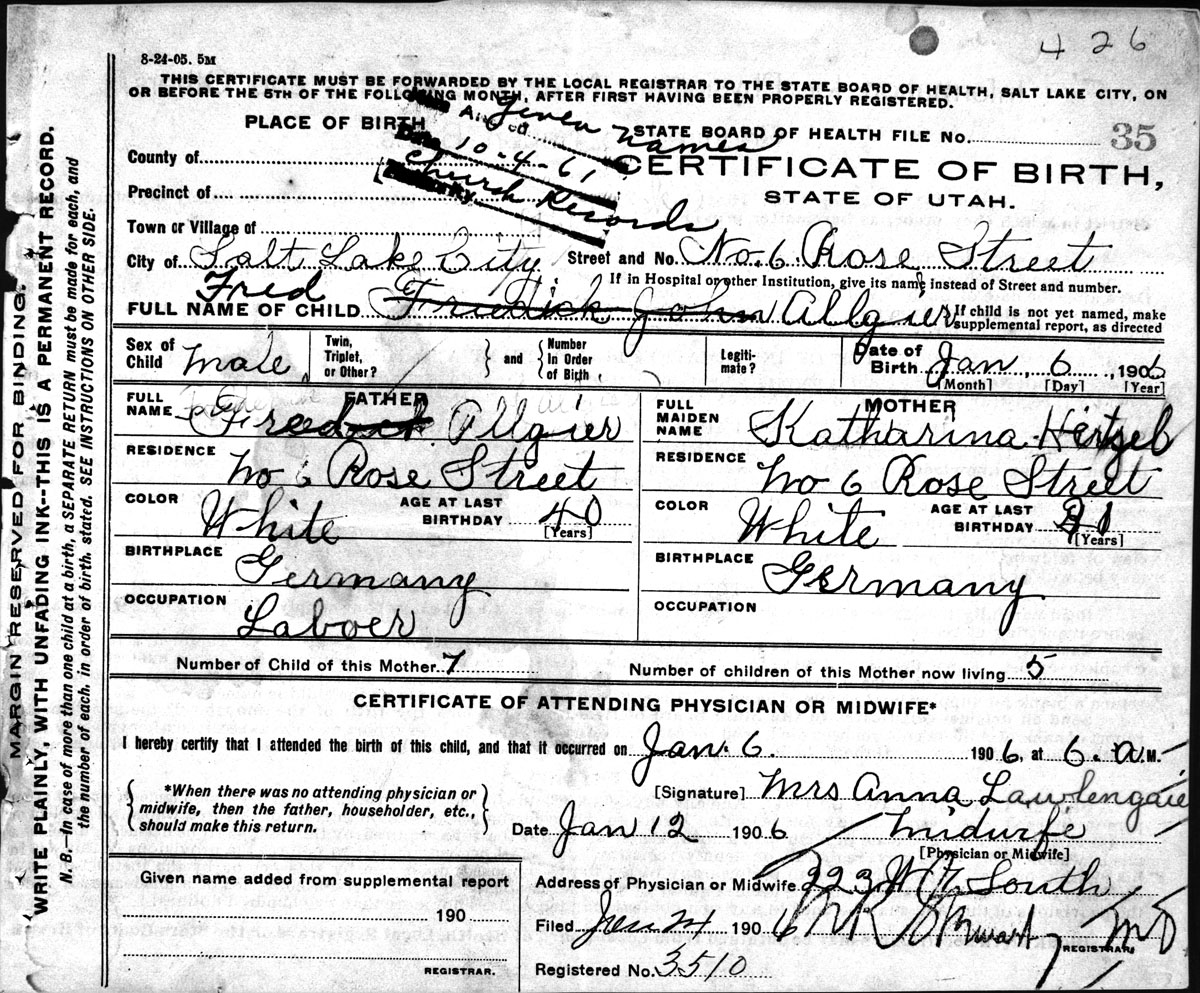 426
8-24-05. 5M
THIS CERTIFICATE MUST BE FORWARDED BY THE LOCAL REGISTRAR TO THE STATE BOARD OF HEALTH, SALT LAKE CITY, ON
OR BEFORE THE 5TH OF THE FOLLOWING MONTH, AFTER FIRST HAVING BEEN PROPERLY REGISTERED.
PLACE OF BIRTH
Given names
10-4-61
Church Records
STATE BOARD OF HEALTH FILE No. 35
County of
CERTIFICATE OF BIRTH,
Precinct of
STATE OF UTAH.
Town or Village of
City of Salt Lake City Street and No. No. 6 Rose Street
If in Hospital or other Institution, give its name instead of Street and number.
FULL NAME OF CHILD Fred Fredick John Allgier If child is not yet named, make
supplemental report, as directed
Sex of Child Male Twin, Triplet, or Other? and Number In Order of Birth Legiti-mate? Date of Birth Jan. 6 1906
[Month] [Day] [Year]
FATHER
FULL NAME Fredick Allgier
RESIDENCE No 6 Rose Street
COLOR White AGE AT LAST BIRTHDAY 40 [Years]
BIRTHPLACE Germany
OCCUPATION Laboer
MOTHER
FULL MAIDEN NAME Katharina Hirtzel
RESIDENCE No 6 Rose Street
COLOR White AGE AT LAST BIRTHDAY [Years]
BIRTHPLACE Germany
OCCUPATION
Number of Child of this Mother 7 Number of children of this Mother now living 5
CERTIFICATE OF ATTENDING PHYSICIAN OR MIDWIFE*
I hereby certify that I attended the birth of this child, and that it occurred on Jan. 6 1906, at 6. A.M.
*When there was no attending physician or
midwife, then the father, householder, etc.,
should make this return.
[Signature] Mrs Anna
Date Jan 12 1906 Midwife
[Physician or Midwife]
Given name added from supplemental report
190
REGISTRAR.
Address of Physician or Midwife 223 W South
Filed Jan 1906 Stewart MD
REGISTRAR
Registered No. 3510
MARGIN RESERVED FOR BINDING.
WRITE PLAINLY, WITH UNFADING INK--THIS IS A PERMANENT RECORD.
N. B.—In case of more than one child at a birth, a SEPARATE RETURN must be made for each, and
the number of each, in order of birth, stated. SEE INSTRUCTIONS ON OTHER SIDE.